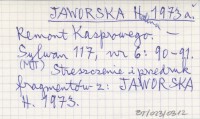 JAWORSKA H. 1973 a.
Remont Kasprowego. —
Sylwan 117, nr 6: 90-91.
(MT) Streszczenie i przedruk
fragmentów z: JAWORSKA
H. 1973.